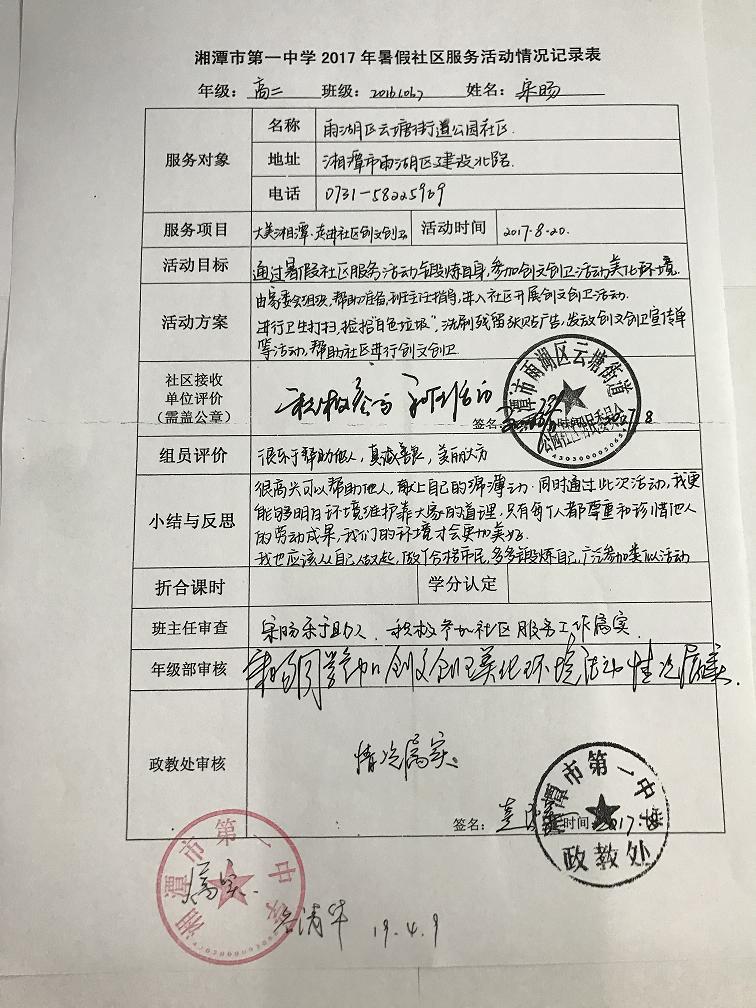 湘潭市第一中学 2017 年暑假社区服务活动情况记录表
年级：高二 班级：2016106.7 姓名：宋旸
服务对象
名称 雨湖区云塘街道公园社区.
地址 湘潭市雨湖区建设北路.
电话 0731-58225969
服务项目 大美湘潭.走进社区创文创卫 活动时间 2017.8.20.
活动目标 通过暑假社区服务活动锻炼自身,参加创文创卫活动美化环境.
活动方案
由家委会组织,帮助准备,班主任指导,进入社区开展创文创卫活动.
进行卫生打扫,捡拾"白色垃圾",洗刷残留张贴广告,发放创文创卫宣传单
等活动,帮助社区进行创文创卫
社区接收
单位评价
（需盖公章）
积极参与
活动
签名：
湘潭市雨湖区云塘街道
组员评价 很乐于帮助他人,真诚善良,美丽大方
小结与反思
很高兴可以帮助他人,献上自己的绵薄动.同时通过此次活动,我更
能够明白环境维护靠大家的道理.只有每个人都尊重和珍惜他人
的劳动成果,我们的环境才会更加美好.
我也应该从自己做起,做个合格市民,多多锻炼自己,广泛参加类似活动
折合课时 学分认定
班主任审查 宋旸乐于助人、积极参加社区服务工作属实.
年级部审核 宋旸同学参加创文创卫美化环境活动情况属实.
政教处审核 情况属实.
签名： 时间 2017.
湘潭市第一中学
政教处
湘潭市第一中学
属实.
19.4.9